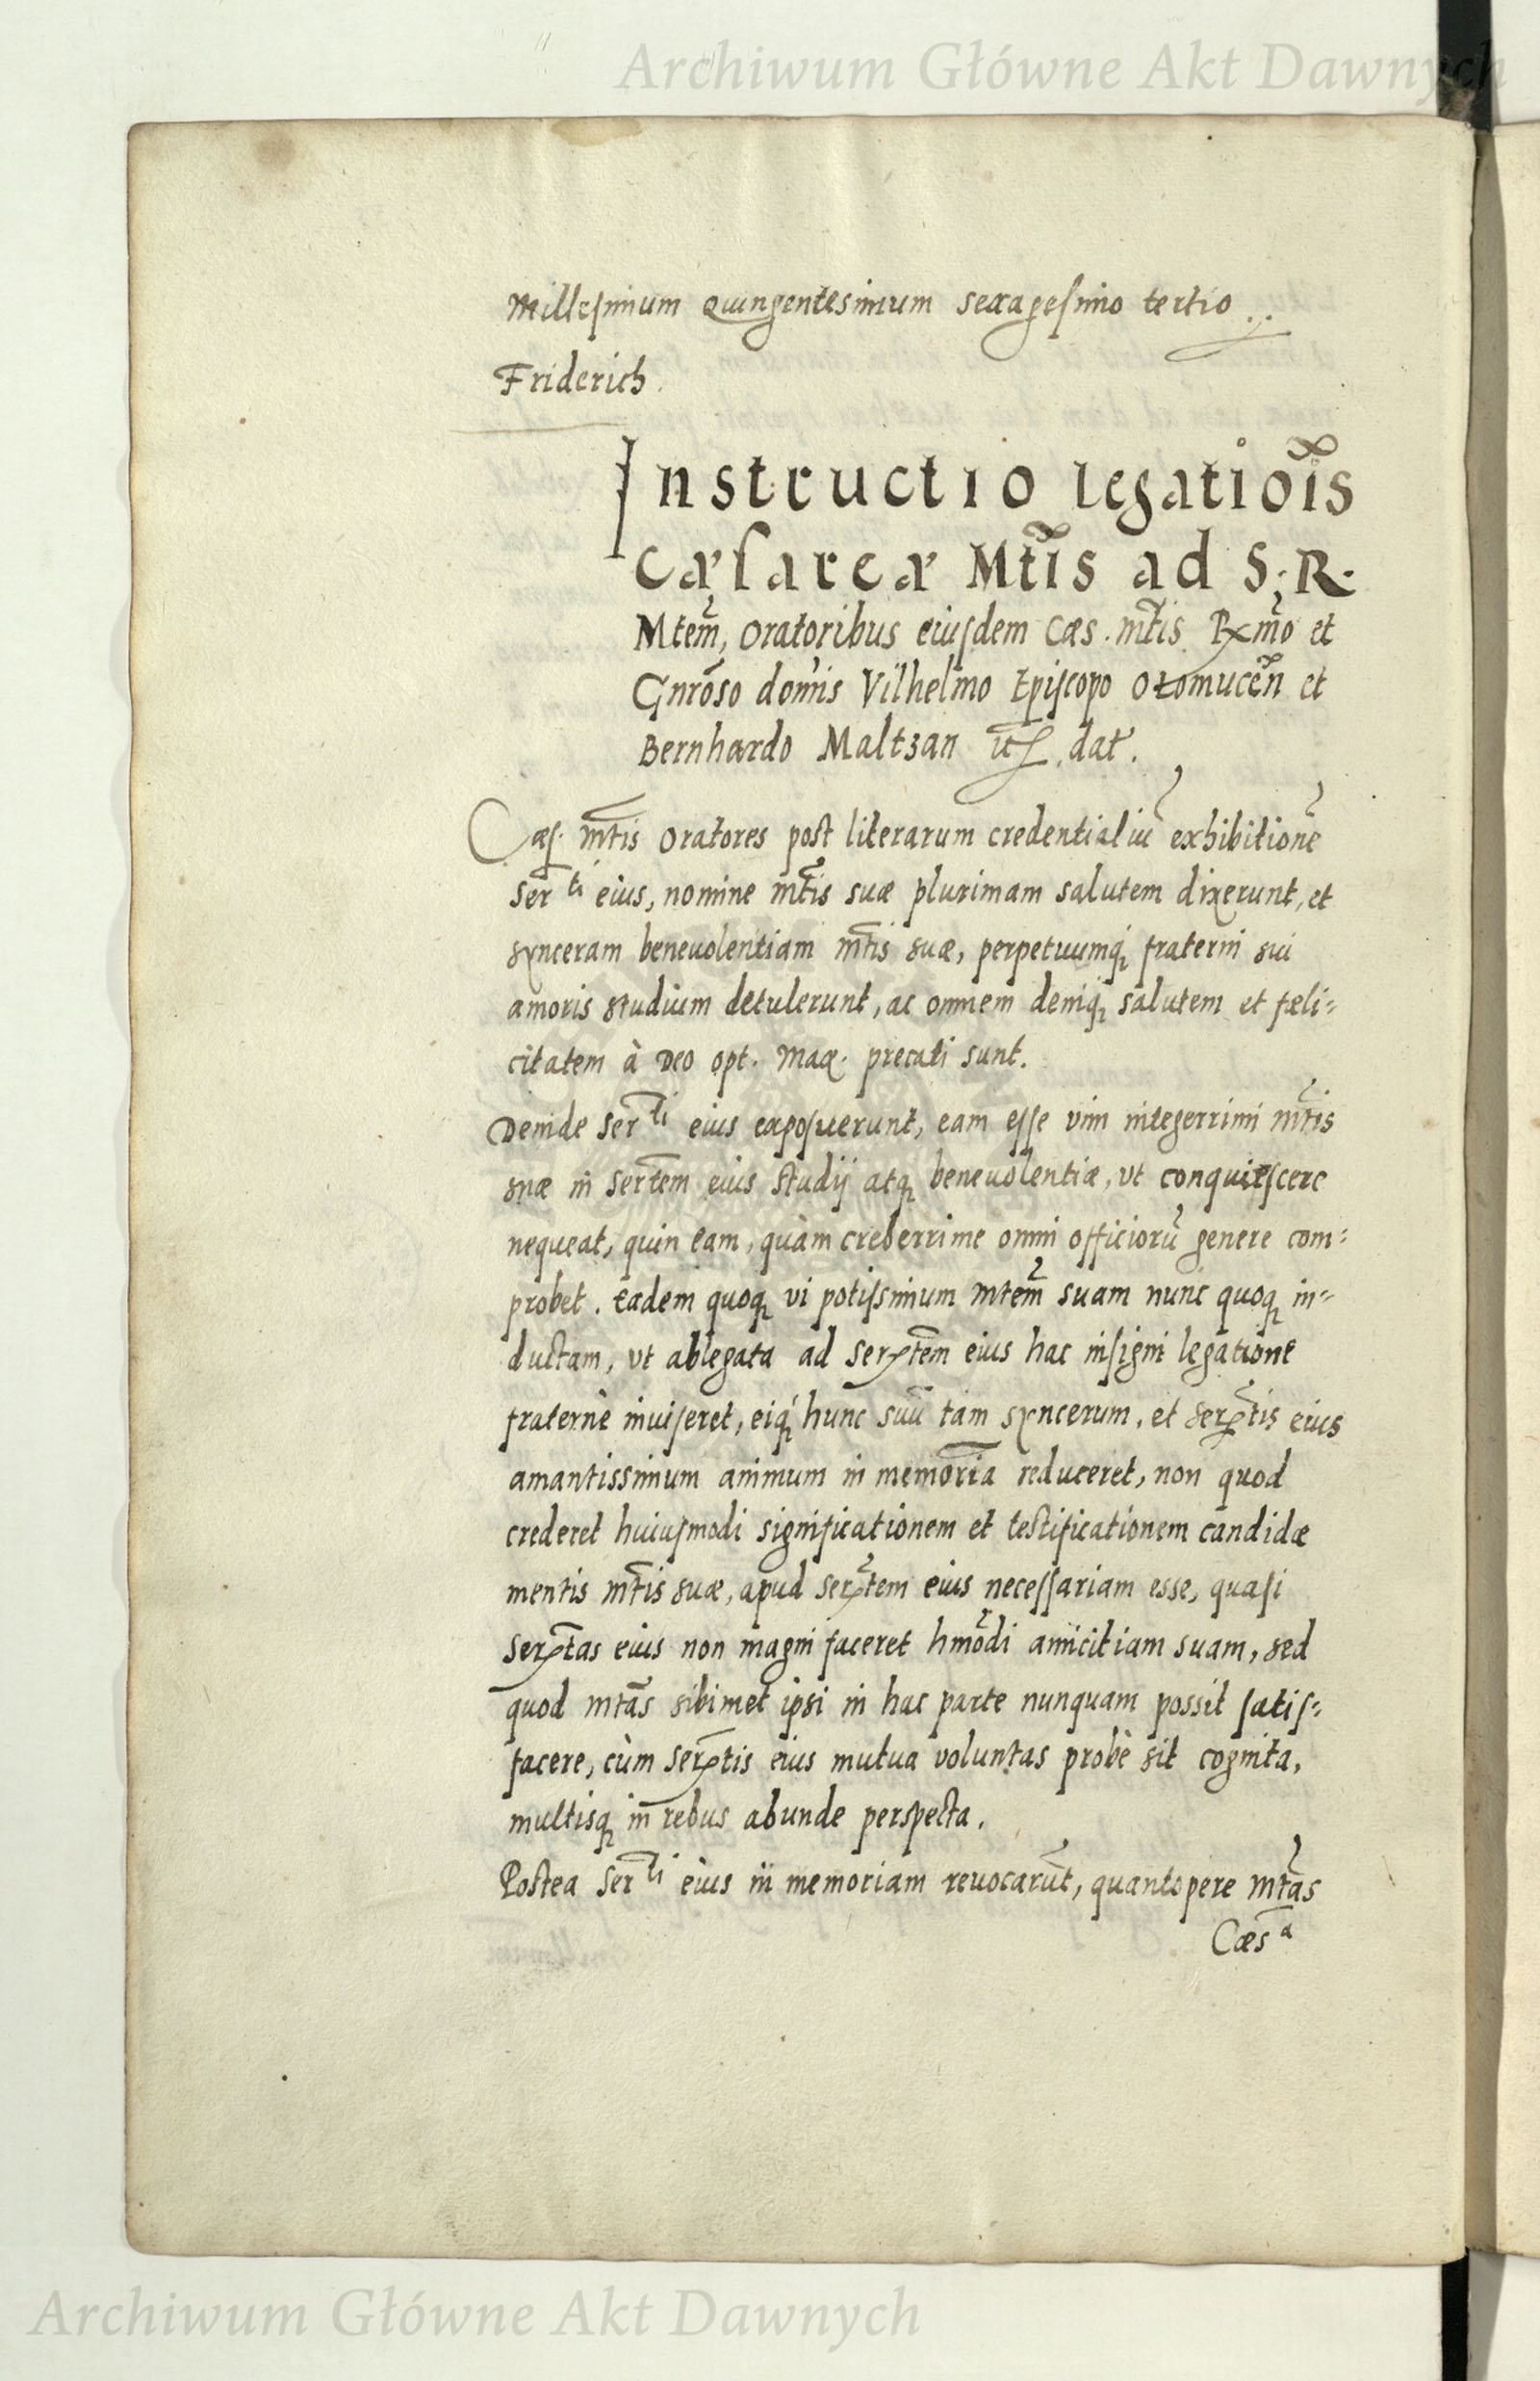 Archiwum Główne Akt Dawnych
Millesimum Quingentesimum sexagesimo tertio..
Friderich.
Instructio legatiõis
Cæsareæ Mtis ad S. R.
Mtem̃, oratoribus eiusdem Cæs. mtis Rxmo et
Gnrõso domis Vilhelmo Episcopo Olomuceñ et
Bernhardo Maltzan dat.
Cæs. mtis oratores post literarum credentialiũ exhibitionẽ
ser^ti eius, nomine mtis suæ plurimam salutem dixerunt, et
synceram beneuolentiam mtis suæ, perpetuumq; fraterni sui
amoris studium detulerunt, ac omnem deniq; salutem et fæli-
citatem à Deo opt. Max. precati sunt.
Deinde ser^ti eius exposuerunt, eam esse vim integerrimi mtis
suæ in sertem eius studij atq; beneuolentiæ, vt conquiescere
nequeat, quin eam, quàm creberrime omni officiorũ genere com-
probet. Eadem quoq; vi potissimum mtem̃ suam nunc quoq; in-
ductam, vt ablegata ad serxtem eius hac insigni legatione
fraternè inuiseret, eiq; hunc suũ tam syncerum, et serxtis eius
amantissimum animum in memoria reduceret, non quod
crederet huiusmodi significationem et testificationem candidæ
mentis mtis suæ, apud serxtem eius necessariam esse, quasi
serxtas eius non magni faceret hmõdi amicitiam suam, sed
quod mtãs sibimet ipsi in hac parte nunquam possit satis-
facere, cùm serxtis eius mutua voluntas probè sit cognita,
multisq; in rebus abunde perspecta.
Postea ser^ti eius in memoriam reuocarũt, quantopere mtãs
Cæs^a
Archiwum Główne Akt Dawnych